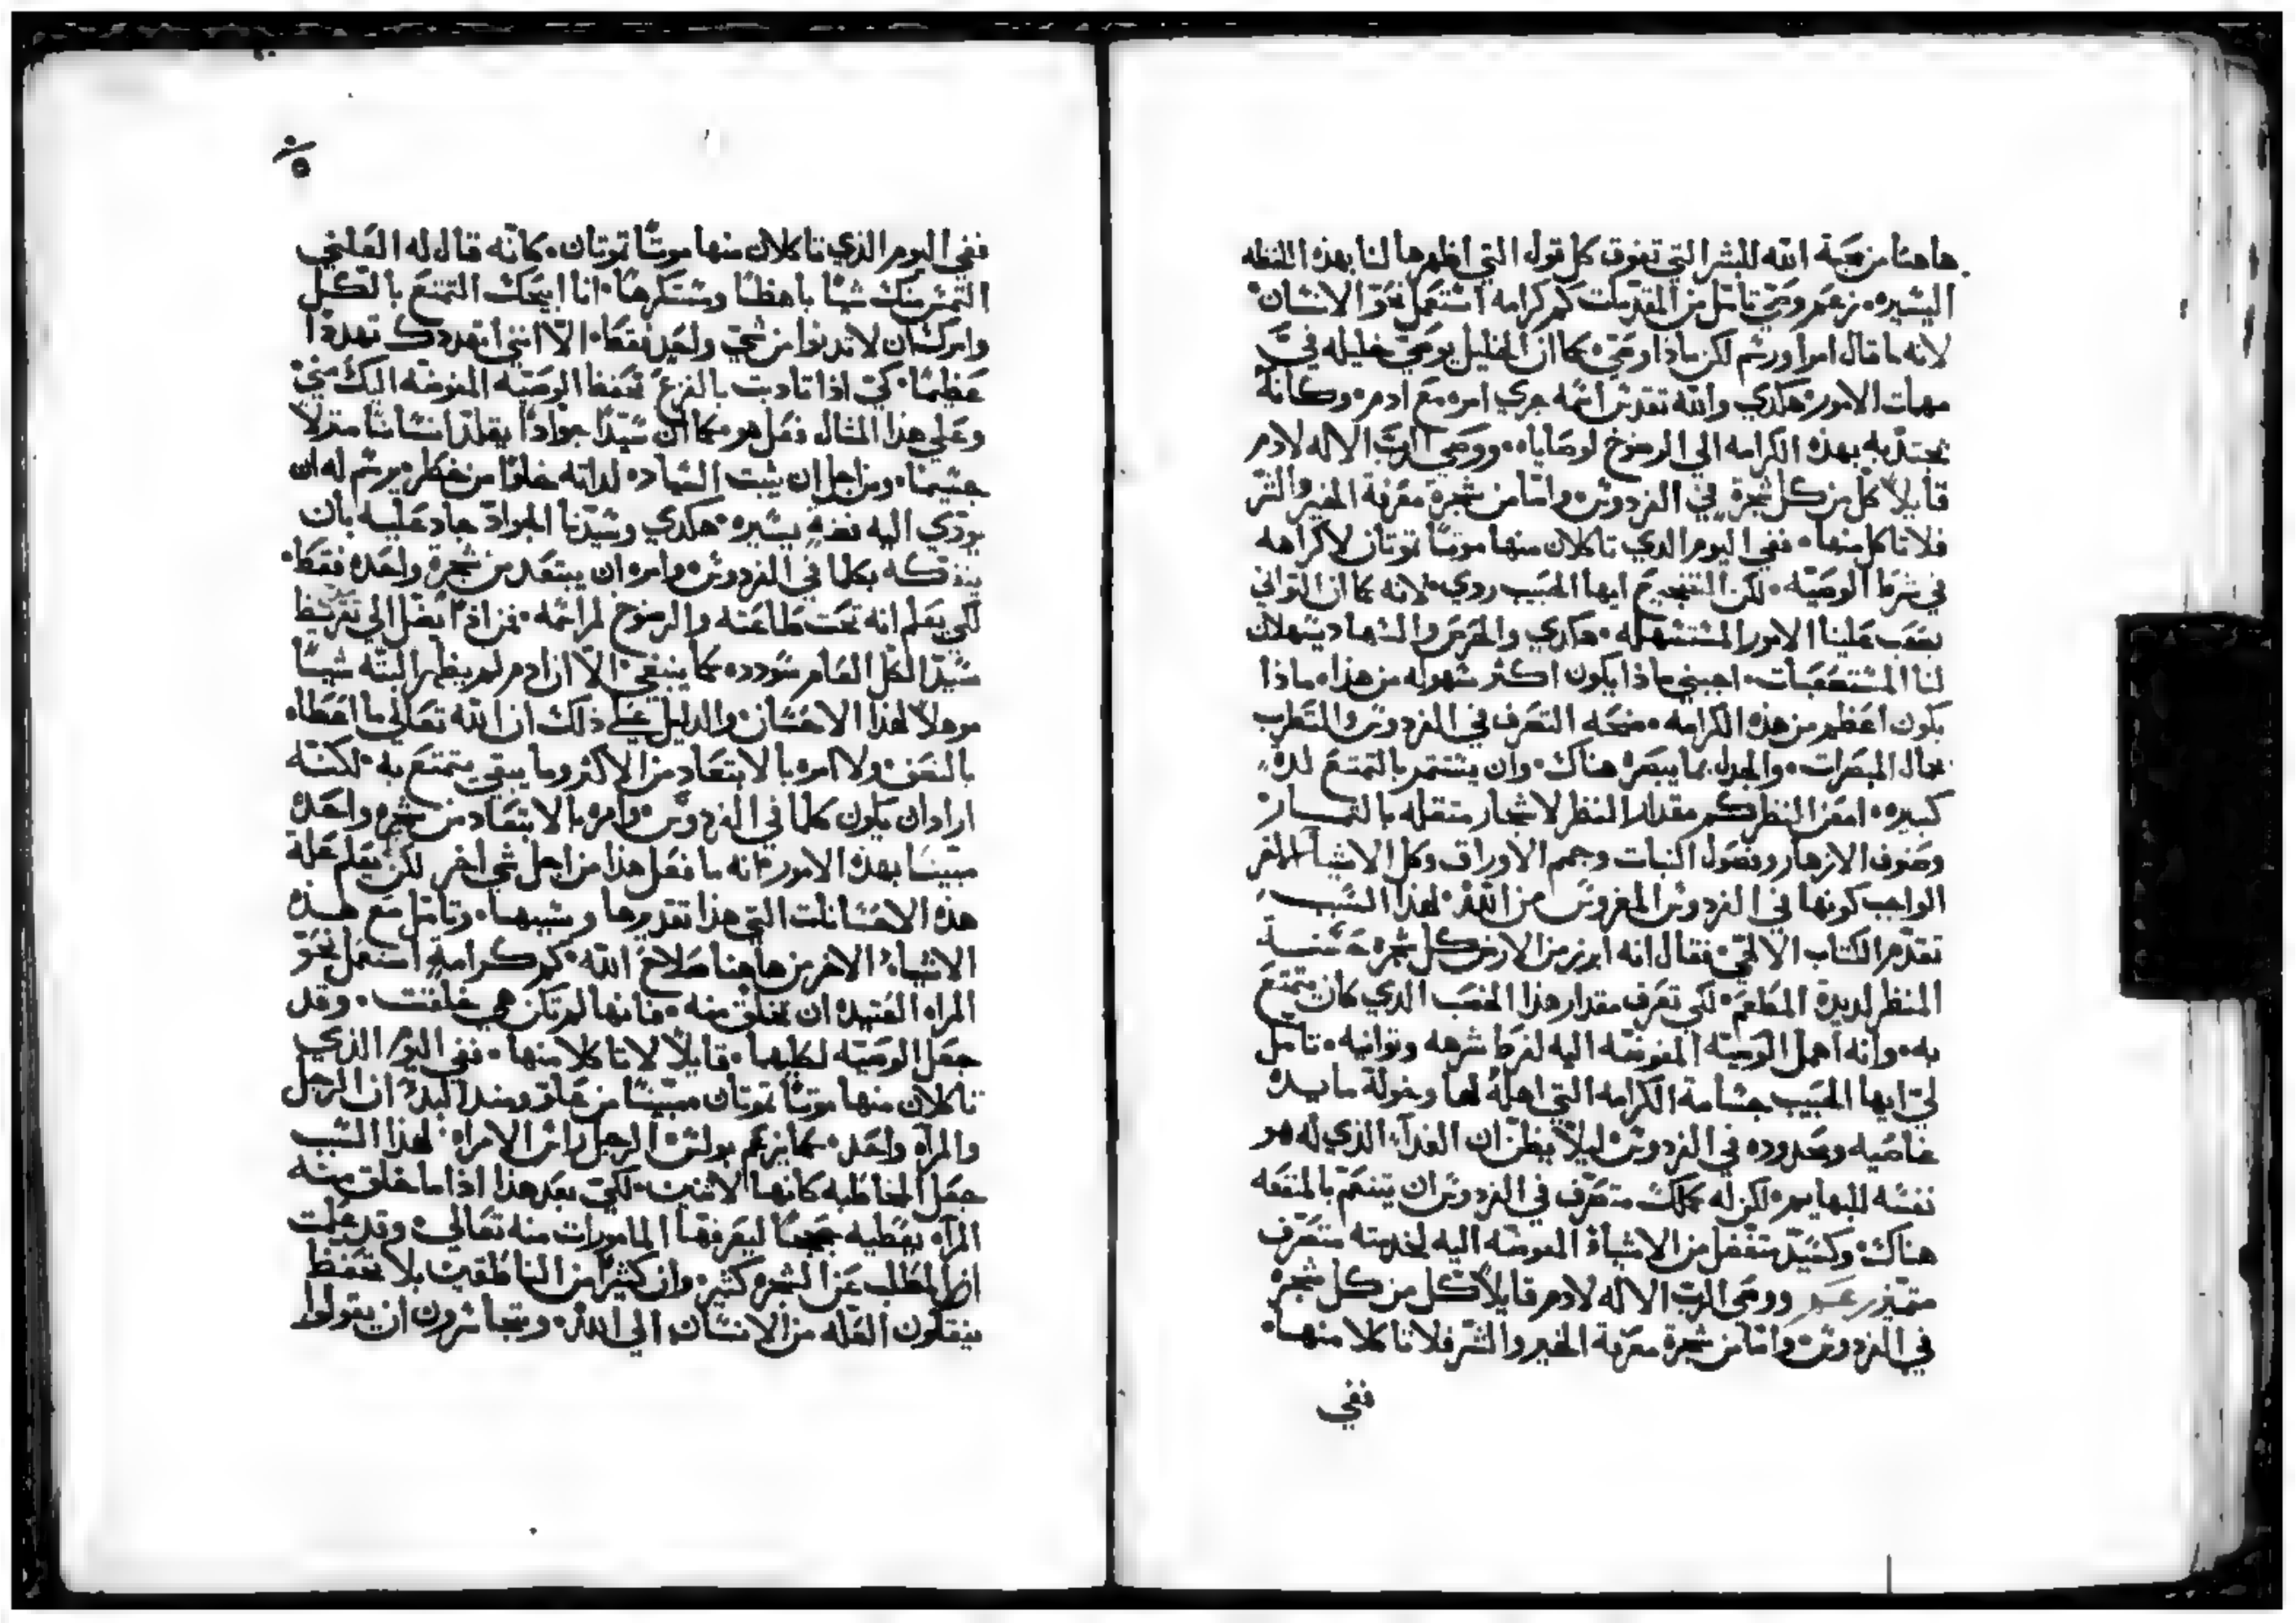 هاهنا من محبة الله للبشر التي تفوق كل قول التي اظهرها لنا بهذه اللفظه
اليسيره · زعم ووصي تامل من المقدمات كم كرامه استعمل نحو الانسان ·
لانه ما قال امر او رسم لكن ماذا وصي · كما ان الخليل يوصي خليله في
مهمات الامور · هكذي والله تقدس اسمه جري امره مع ادم · وكانه
يجتذبه بهذه الكرامه الي الرضوخ لوصاياه · ووصي الرب الاله لادم
قايلاً كل من كل شجرة في الفردوس · واما من شجرة معرفة الخير والشر
فلا تاكل منها · ففي اليوم الذي تاكلان منها موتاً تموتان لا كراهه
في شرط الوصيه · لكن التضجيع ايها الحبيب ردي · لانه كما ان التواني
يصعب علينا الامور المستسهله · هكذي والحرص والسهاد يسهلان
لنا المستصعبات · اجبني ماذا يكون اكثر سهوله من هذا · ماذا
يكون اعظم من هذه الكرامه · منحه التصرف في الفردوس والتطرب
بجمال المبصرات · والجدل بما يبصره هناك · وان يستثمر بالتمتع لذه
كبيره · امعن النظر كم مقدار النظر لاشجار متقله بالثمار
وصنوف الازهار وفصول النبات وجم الاوراق وكل الاشيا الاخر
الواجب كونها في الفردوس المغروس من الله · لهذا السبب
تقدم الكتاب الالهي · فقال انه ابرز من الارض كل شجره حسنة
المنظر لذيذة المطعم · لكي تعرف مقدار هذا الخصب الذي كان يتمتع
به · وانه اهمل الوصيه المفوضه اليه لفرط شرهه وتوانيه · تامل
لي ايها الحبيب جسامة الكرامه التي اهله لها وخوله مايده
خاصيه ومحدوده في الفردوس ليلا يظن ان الغدآ الذي له هو
نفسه للبهايم · لكن له كملك متصرف في الفردوس ان يتنعم بالمنفعه
هناك · وكسيد منفصل من الاشيآ المفوضه اليه لخدمته متصرف
متميز ووصي الرب الاله لادم قايلاً كل من كل شجره
في الفردوس واما من شجرة معرفة الخير والشر فلا تاكلا منها ·
ففي
ففي اليوم الذي تاكلان منها موتاً تموتان · كانه قال له
التمس منك شياً باهظاً ومستكرهاً · انا ابيحك التمتع بالكل
وامرك ان لا تدنوا من شي واحد فقط · الا انني اتهددك تهددا
عظيماً · كي اذا تادبت بالفزع تحفظ الوصيه المفوضه اليك مني
وعلي هذا المثال فعل هو كما ان سيداً جواداً يقلد انساناً منزلا
جسيماً · ومن اجل ان يثبت السياده لذاته خلواً من خطر يرسم له ان
يودي اليه فضه يسيره · هكذي وسيدنا الجواد جاد عليه بان
يتفكه بكلما في الفردوس وامره ان يبتعد من شجرة واحده فقط ·
لكي يعلم انه تحت طاعته والرضوخ لمراسمه · فمن اذاً يصل الي تقريظ
سيد الكل العام سودده كما ينبغي · الا ان ادم لم يظهر البته شياً
موهلاً لهذا الاحسان · والدليل علي ذلك ان الله تعالي ما اعطاه
بالنصف ولا امره بالابتعاد من الاكثر وما يبقي يتمتع به · لكنه
اراد ان يكون كلما في الفردوس وامره بالابتعاد من شجره واحده
مبيناً بهذه الامور انه ما فعل هذا من اجل شي اخر لكن يعلم علة
هذه الاحسانات التي هذا تقديرها وسببها · وتامل مع هذه
الاشيآ الاخر من هاهنا صلاح الله · كم كرامة استعمل نحو
المراه العتيده ان تخلق منه · فانها لم تكن هي خلقت · وقد
جعل الوصيه لكليهما · قايلاً لا تاكلا منها · ففي اليوم الذي
تاكلان منها موتاً تموتان مبيناً من فاق ومند البدء ان الرجل
والمرآه واحد · كما يزعم بولس · الرجل راس الامراه · لهذا السبب
جعل المخاطبه كانها لاثنين · لكي بعد هذا اذا ما خلق منه
المرآه يعطيه حججاً ليعرفها المامورات منه تعالي · وقد علمت
ان المطلب عن الشجره كثير · وان كثيراً من الناطقين بلا تحفظ
ينقلون العله من الانسان الي الله · ويتجاسرون ان يقولوا